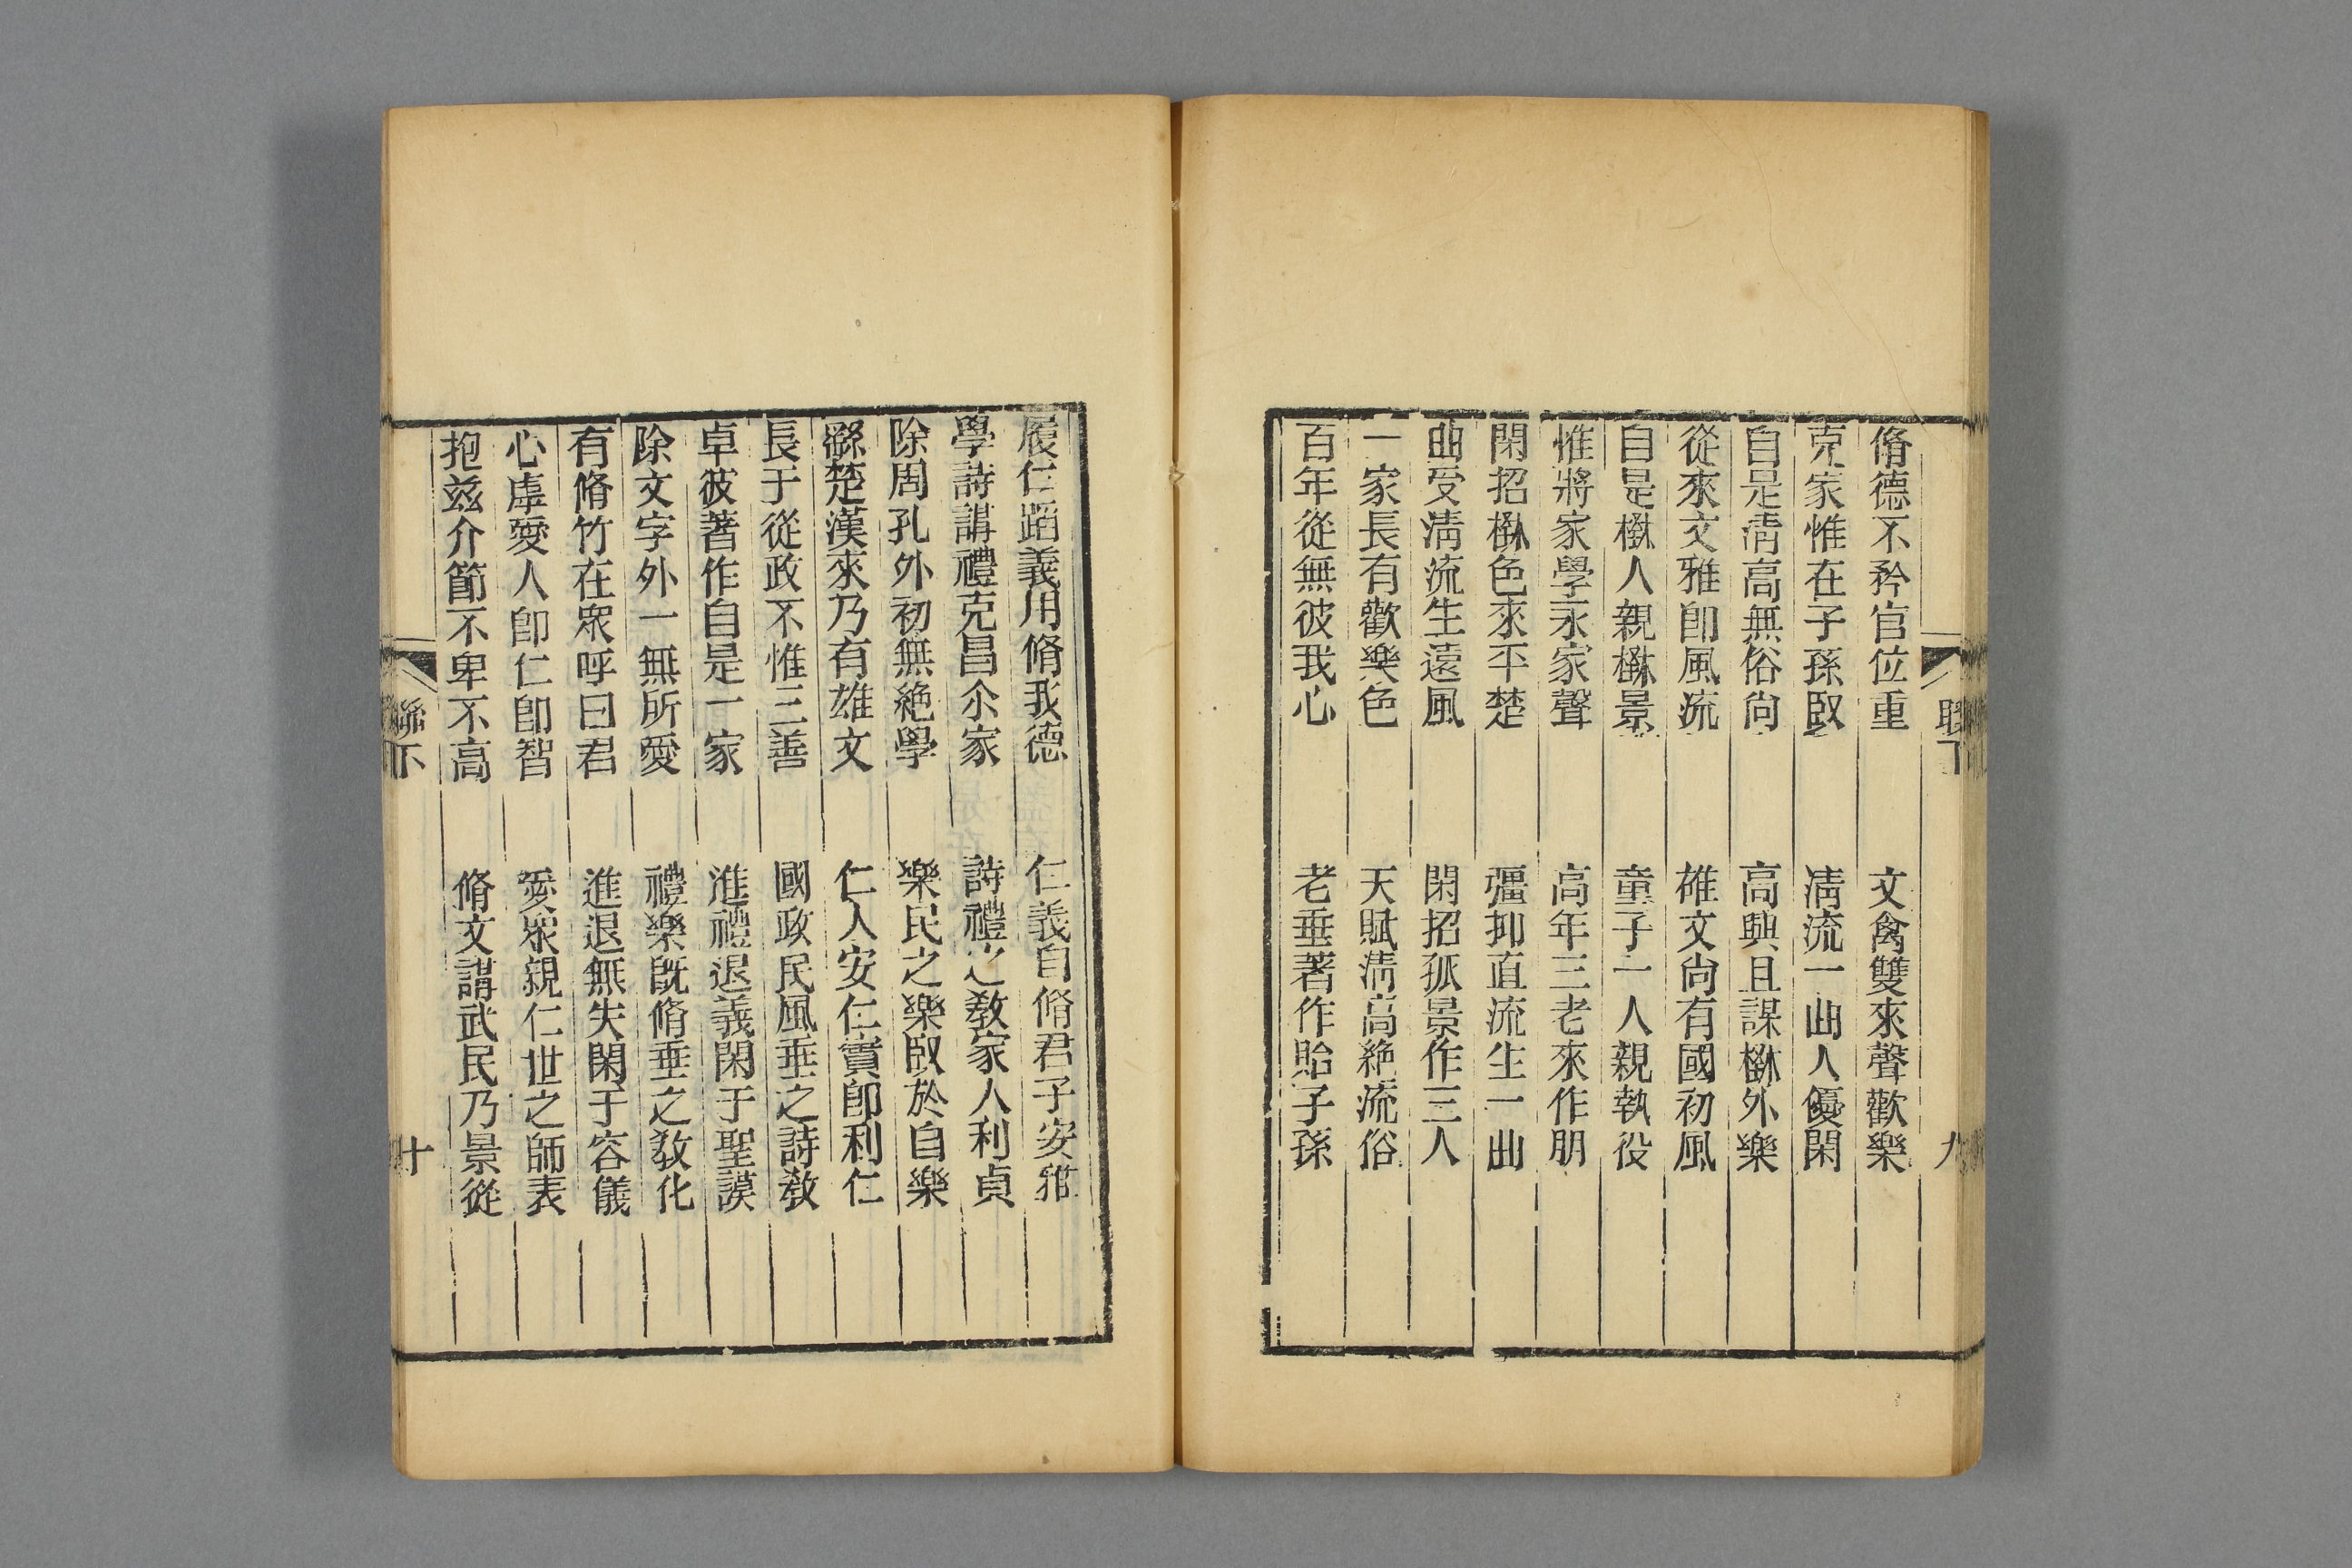 脩德不矜官位重　文禽雙來聲歡樂
克家惟在子孫臤　淸流一曲人優閑
自是淸高無俗尙　高興且謀楙外樂
從來文雅卽風流　雄文尙有國初風
自是楙人親楙景　童子一人親執役
惟將家學永家聲　高年三老來作朋
閑招楙色來平楚　彊抑直流生一曲
曲受淸流生遠風　閑招孤景作三人
一家長有歡樂色　天賦淸高絶流俗
百年從無彼我心　老垂著作貽子孫
聯下
九
履仁蹈義用脩我德　仁義自脩君子安雅
學詩講禮克昌尒家　詩禮之敎家人利貞
除周孔外初無絶學　樂民之樂臤於自樂
繇楚漢來乃有雄文　仁人安仁實卽利仁
長于從政不惟三善　國政民風垂之詩敎
卓彼著作自是一家　進禮退義閑于聖謨
除文字外一無所愛　禮樂旣脩垂之敎化
有脩竹在衆呼曰君　進退無失閑于容儀
心虛愛人卽仁卽智　愛衆親仁世之師表
抱玆介節不卑不高　脩文講武民乃景從
聯下
十